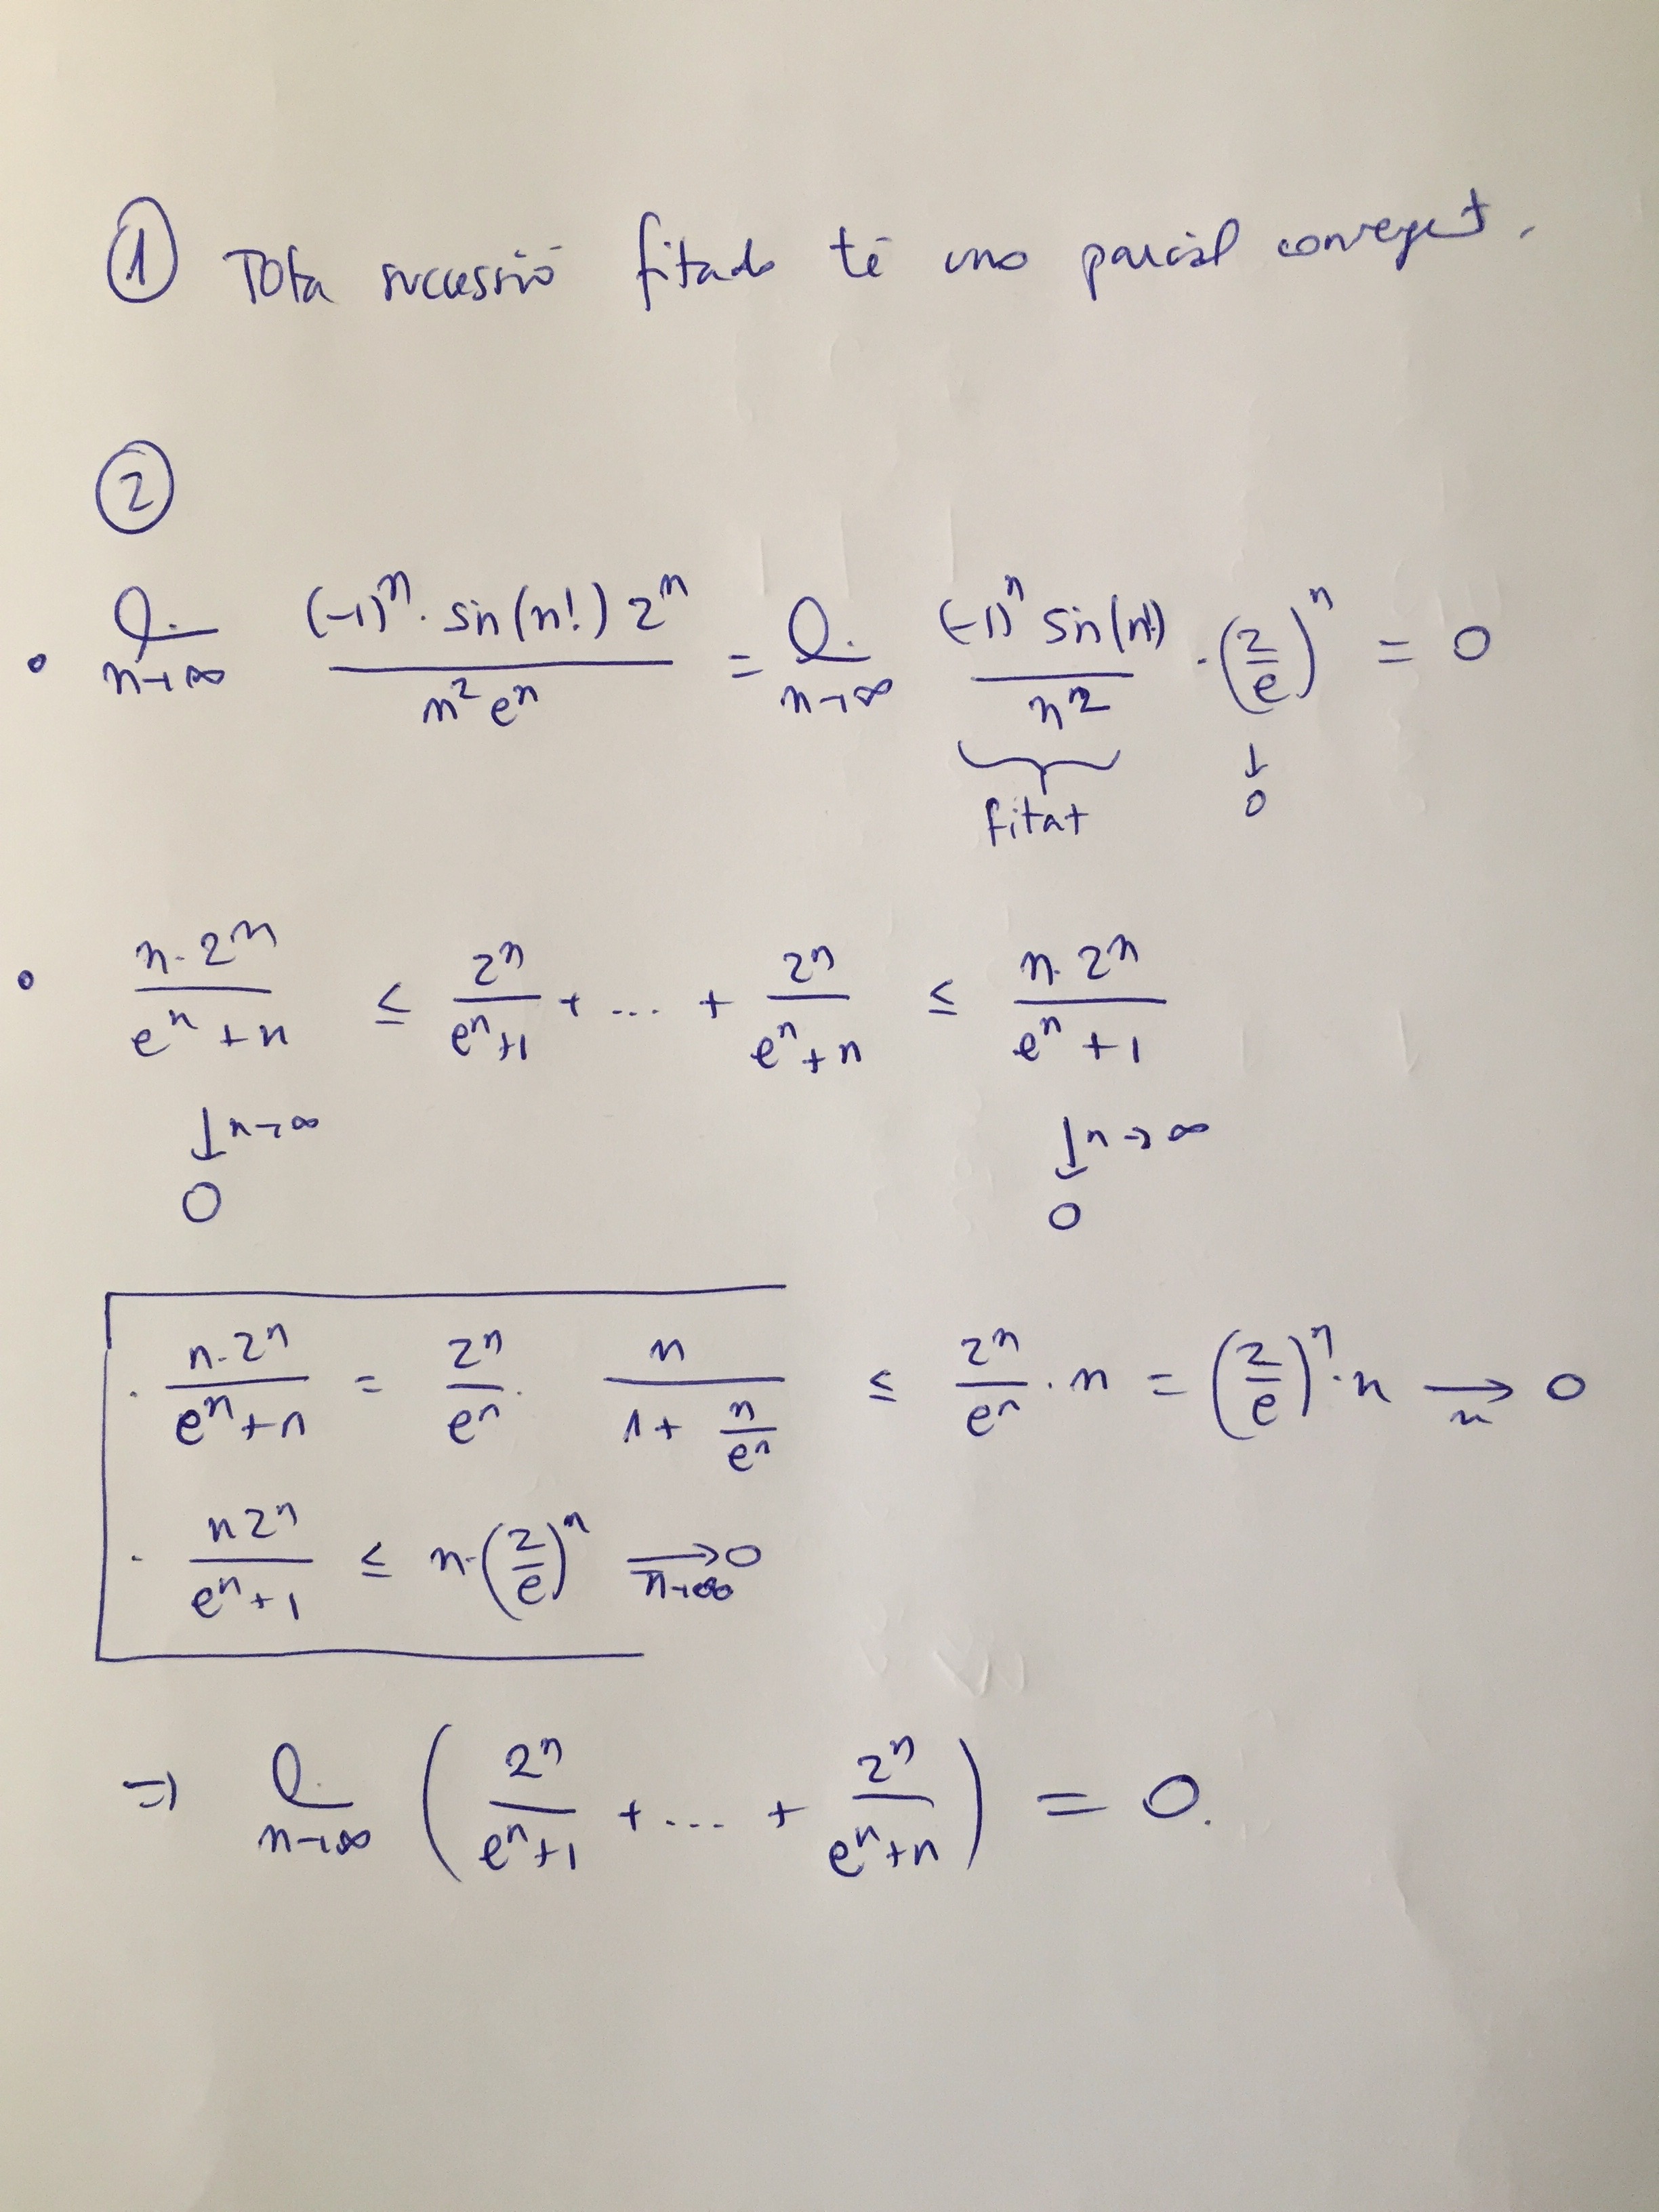 ① Tota successió fitada té una parcial convergent.
②
• lim_{n→∞} \frac{(-1)^n · sin(n!) 2^n}{n^2 e^n} = lim_{n→∞} \frac{(-1)^n sin(n!)}{n^2} · (\frac{2}{e})^n = 0
fitat ↓ 0
• \frac{n · 2^n}{e^n + n} ≤ \frac{2^n}{e^n + 1} + ... + \frac{2^n}{e^n + n} ≤ \frac{n · 2^n}{e^n + 1}
↓ n→∞ ↓ n→∞
0 0
· \frac{n · 2^n}{e^n + n} = \frac{2^n}{e^n} · \frac{n}{1 + \frac{n}{e^n}} ≤ \frac{2^n}{e^n} · n = (\frac{2}{e})^n · n →_n 0
· \frac{n 2^n}{e^n + 1} ≤ n · (\frac{2}{e})^n →_{n→∞} 0
⇒ lim_{n→∞} (\frac{2^n}{e^n + 1} + ... + \frac{2^n}{e^n + n}) = 0.